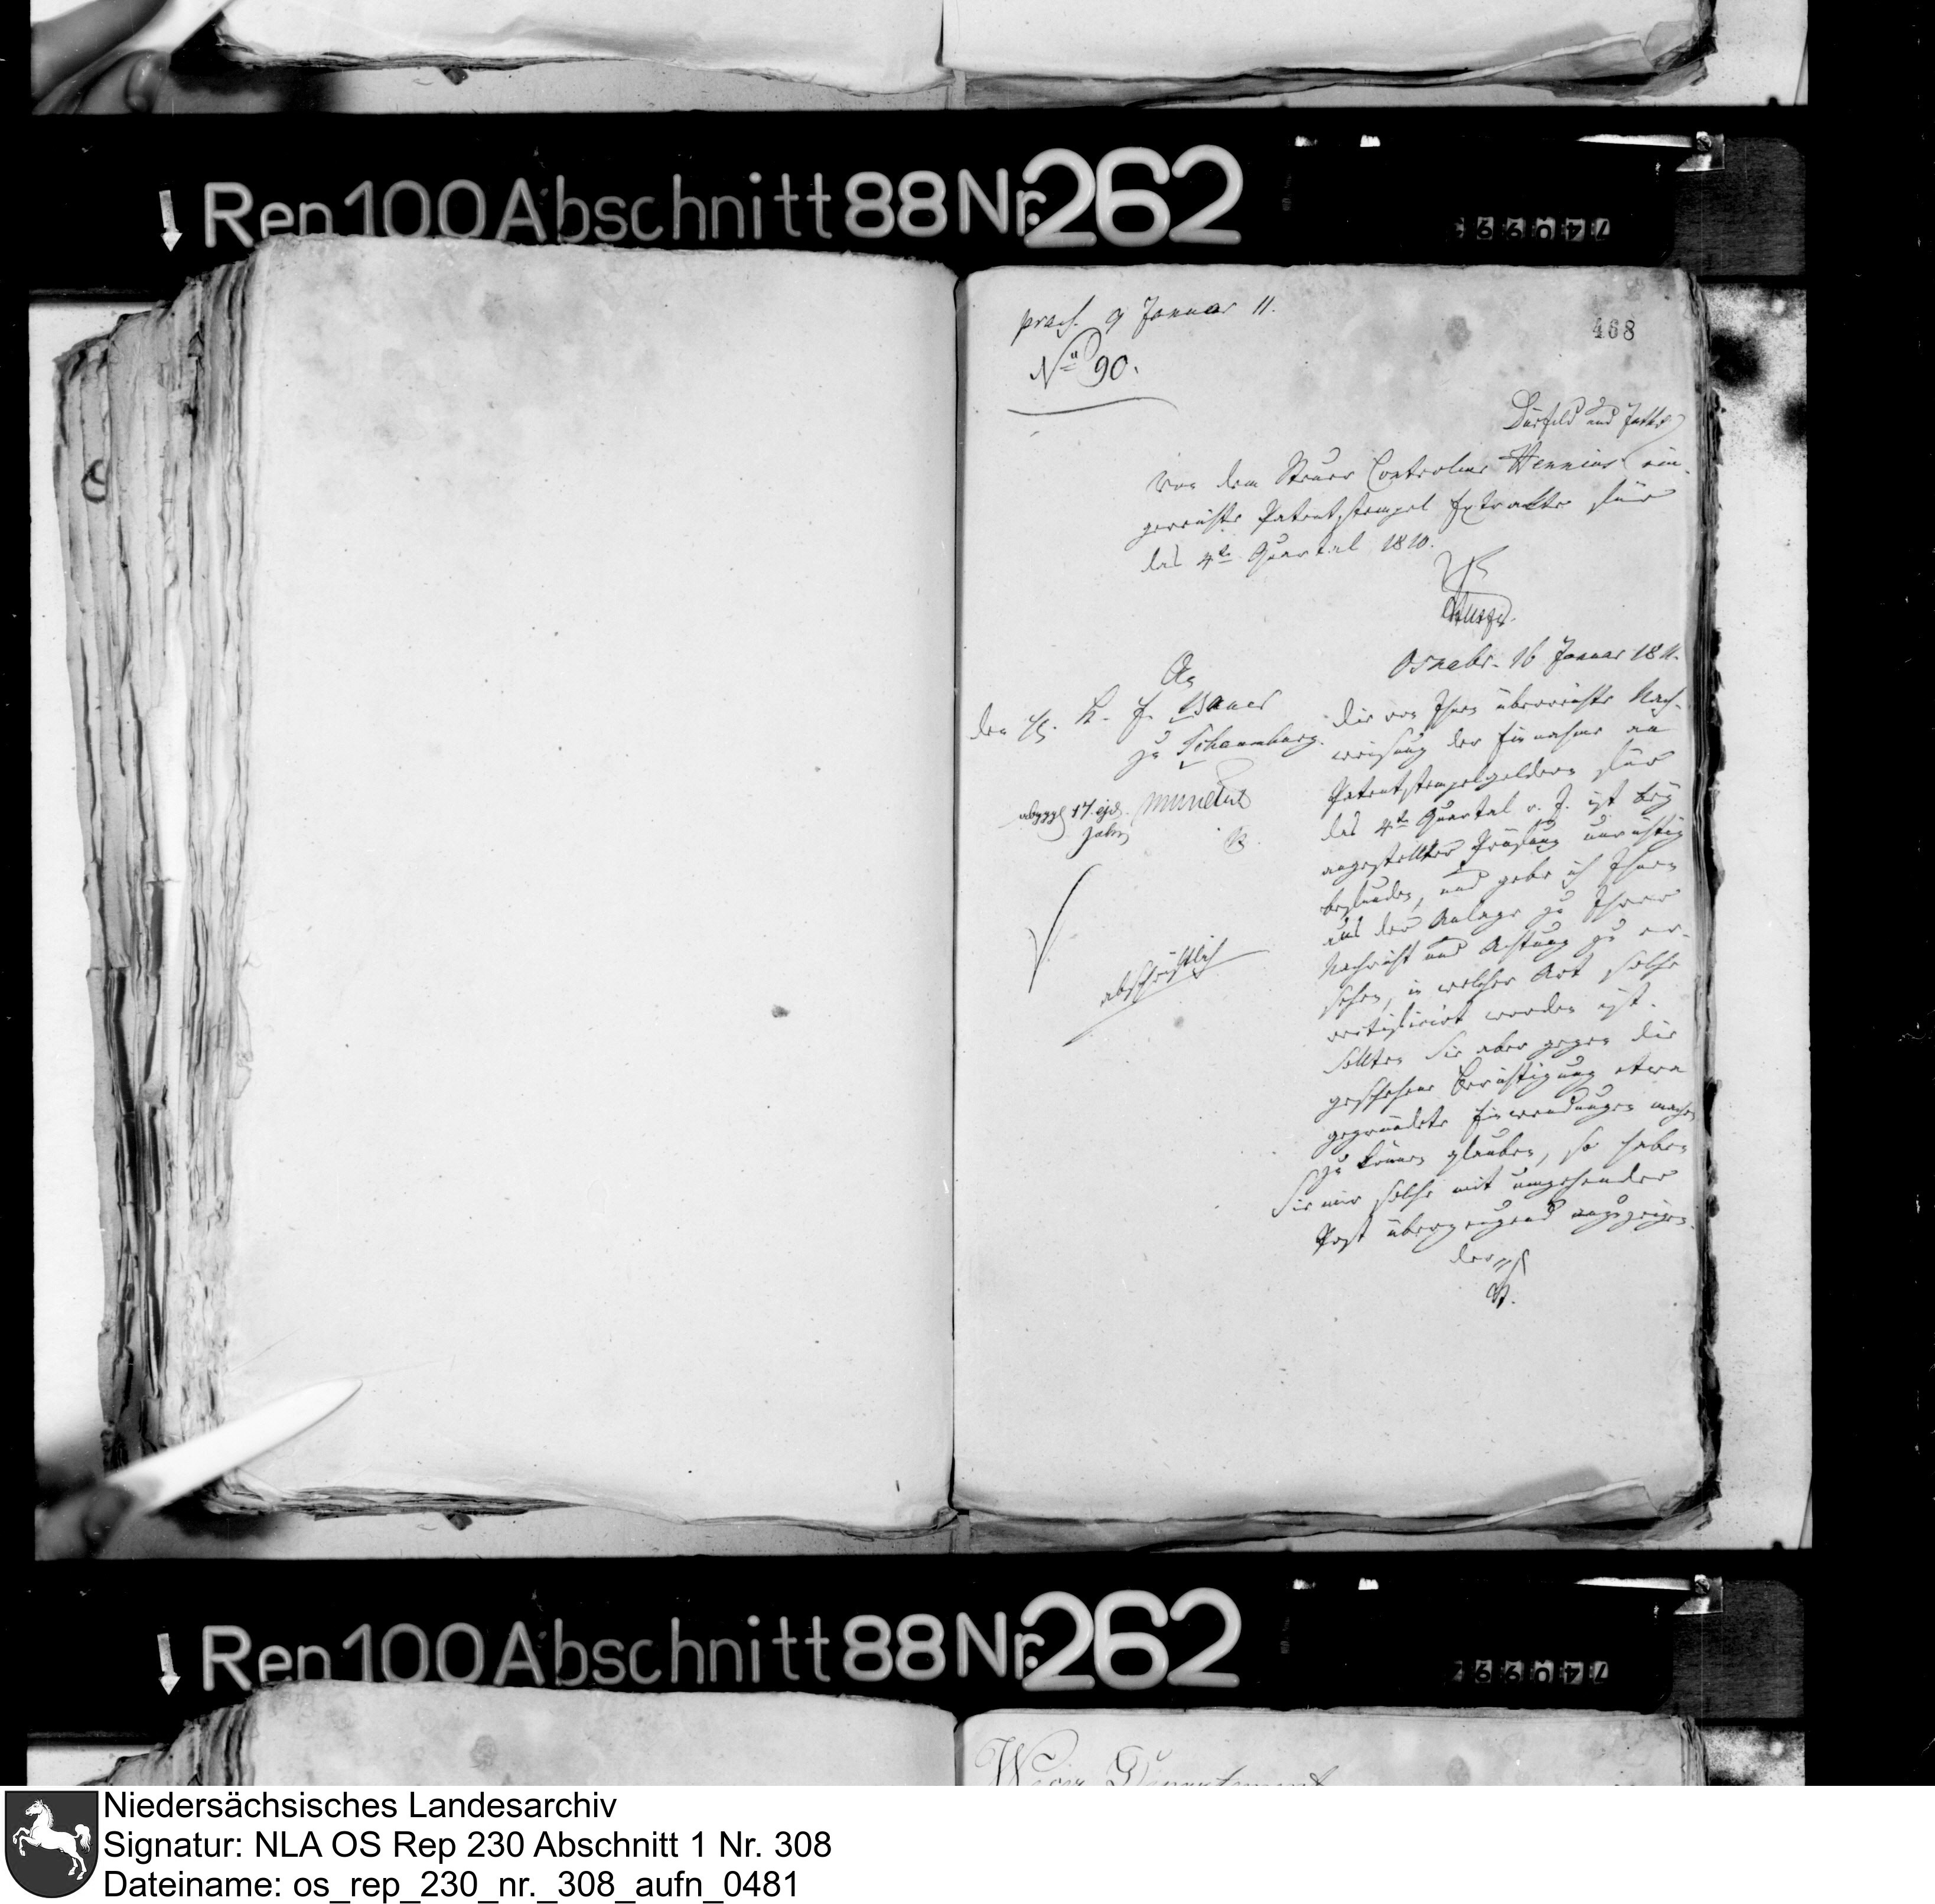 Rep 100 Abschnitt 88 Nr. 262
praes. 9 Januar 11.
468
No 90.
von dem Steuer Controleur Hennius ein-
gereichte Patentstempel Extracte für
das 4te Quartal 1810.
Osnabr. 16 Januar 1811.
An
den H. Bauer
zu Schaumburg.
17. ejd. mundirt
abschriftlich
die von Ihnen überreichte Nach-
weisung der Einnahme an
Patentstempelgeldern für
das 4te Quartal v. J. ist bey
angestellter Prüfung unrichtig
befunden, und gebe ich Ihnen
aus der Anlage zu Ihrer
Nachricht und Achtung zu er-
sehen, in welcher Art solche
rectificirt worden ist.
Sollten Sie aber gegen die
geschehene Berichtigung etwa
gegründete Einwendungen machen
zu können glauben, so haben
Sie mir solche mit umgehender
Post überzeugend anzuzeigen.
Der
Rep 100 Abschnitt 88 Nr. 262
Weser Departement
Niedersächsisches Landesarchiv
Signatur: NLA OS Rep 230 Abschnitt 1 Nr. 308
Dateiname: os_rep_230_nr._308_aufn_0481